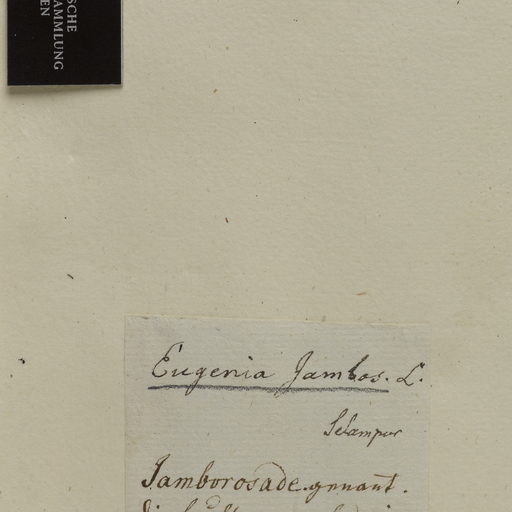 SCHE
AMMLUNG
EN
Eugenia Jambos. L.
Jamborosade. genant.